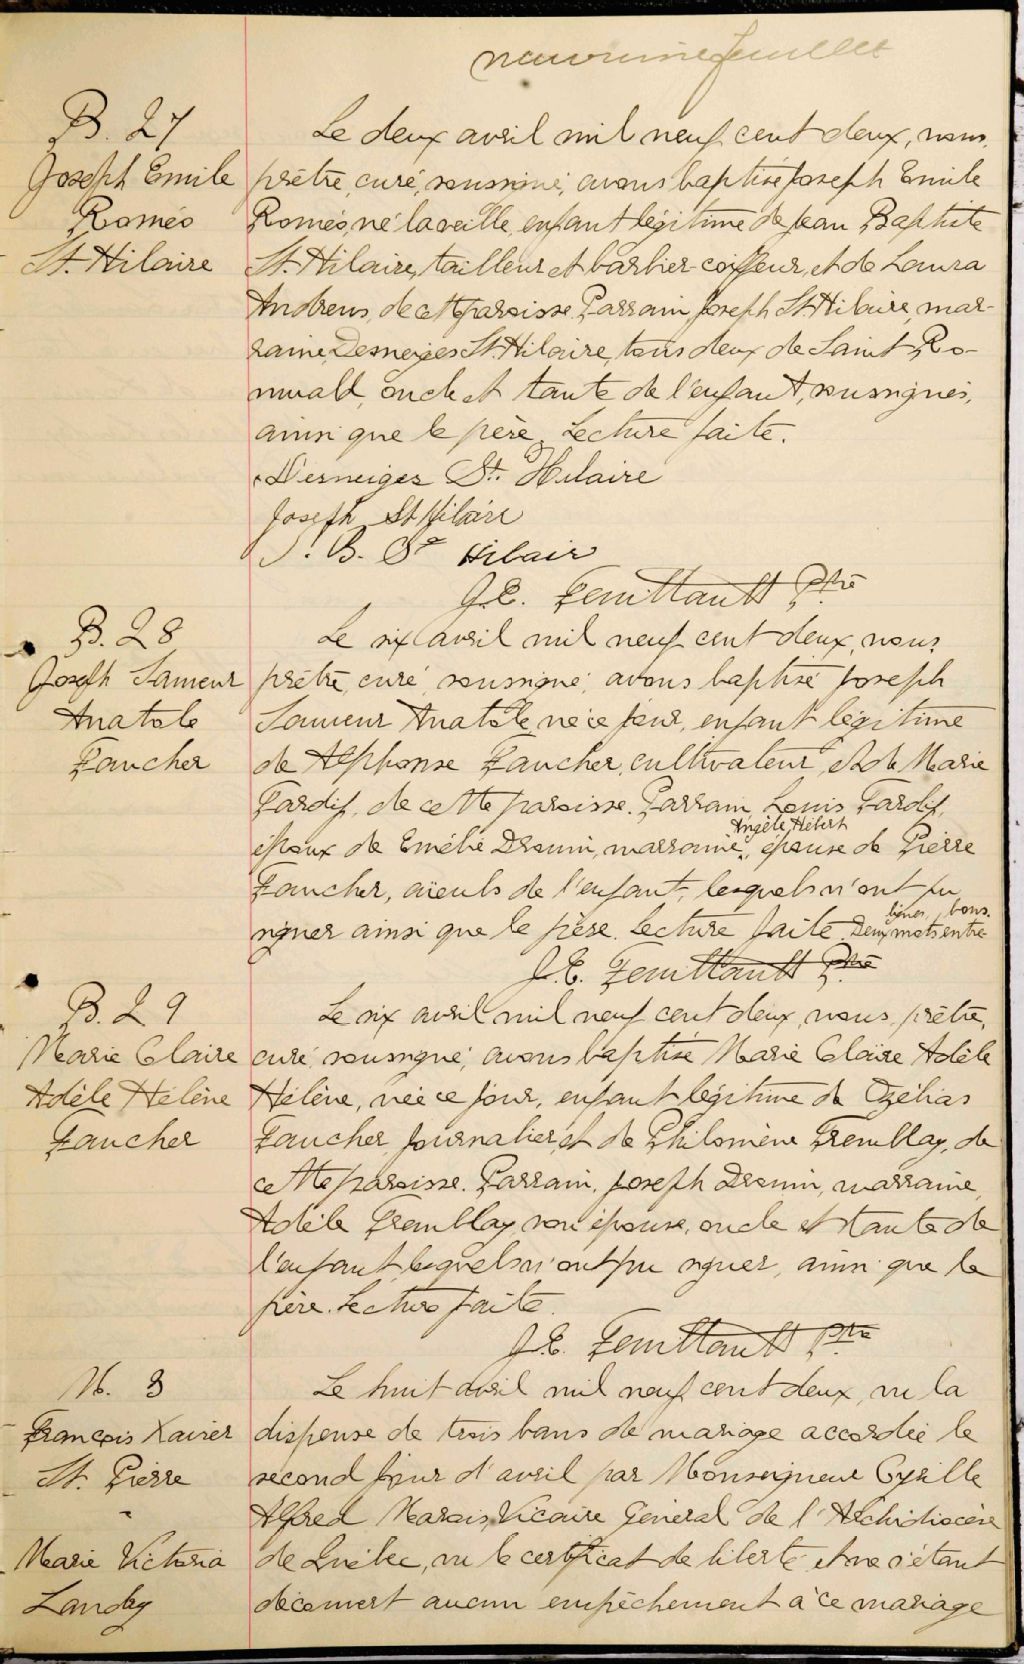 neuvième feuillet
B. 27
Joseph Emile
Roméo
St. Hilaire
Le deux avril mil neuf cent deux, nous,
prêtre, curé, soussigné, avons baptisé Joseph Emile
Roméo, né la veille, enfant légitime de Jean Baptiste
St. Hilaire, tailleur et barbier-coiffeur, et de Laura
Andrews, de cette paroisse. Parrain Joseph St Hilaire, mar-
raine, Desneiges St. Hilaire, tous deux de Saint Ro-
muald, oncle et tante de l'enfant, soussignés,
ainsi que le père. Lecture faite.
Desneiges St. Hilaire
Joseph St Hilaire
J. B. St Hilair
J.E. Feuiltault Ptre
B. 28
Joseph Sauveur
Anatole
Faucher
Le six avril mil neuf cent deux, nous,
prêtre, curé, soussigné, avons baptisé Joseph
Sauveur Anatole, né ce jour, enfant légitime
de Alphonse Faucher, cultivateur, et de Marie
Tardif, de cette paroisse. Parrain, Louis Tardif,
Angèle Hébert
époux de Emélie Drouin, marraine, épouse de Pierre
Faucher, aïeuls de l'enfant, lesquels n'ont pu
signer ainsi que le père. Lecture faite. Deux mots entre
lignes, bons.
J.E. Feuiltault Ptre
B. 29
Marie Claire
Adèle Hélène
Faucher
Le six avril mil neuf cent deux, nous, prêtre,
curé, soussigné, avons baptisé Marie Claire Adèle
Hélène, née ce jour, enfant légitime de Ozélias
Faucher, journalier, et de Philomène Tremblay, de
cette paroisse. Parrain, Joseph Drouin, marraine,
Adèle Tremblay, son épouse, oncle et tante de
l'enfant, lesquels n'ont pu signer, ainsi que le
père. Lecture faite.
J.E. Feuiltault Ptre
M. 3
François Xavier
St. Pierre
-
Marie Victoria
Landry
Le huit avril mil neuf cent deux, vu la
dispense de trois bans de mariage accordée le
second jour d'avril par Monseigneur Cyrille
Alfred Marois, Vicaire Général de l'Archidiocèse
de Québec, vu le certificat de liberté et ne s'étant
découvert aucun empêchement à ce mariage